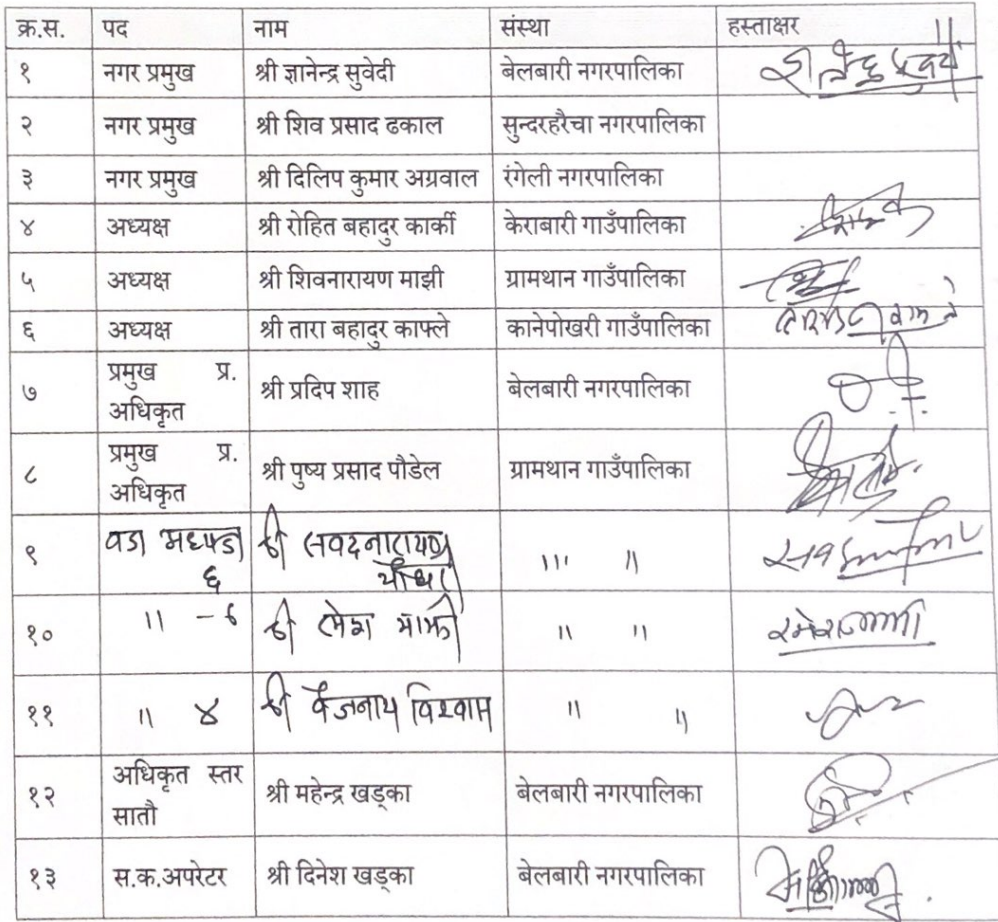 क्र.स. पद नाम संस्था हस्ताक्षर
१ नगर प्रमुख श्री ज्ञानेन्द्र सुवेदी बेलबारी नगरपालिका
२ नगर प्रमुख श्री शिव प्रसाद ढकाल सुन्दरहरैचा नगरपालिका
३ नगर प्रमुख श्री दिलिप कुमार अग्रवाल रंगेली नगरपालिका
४ अध्यक्ष श्री रोहित बहादुर कार्की केराबारी गाउँपालिका
५ अध्यक्ष श्री शिवनारायण माझी ग्रामथान गाउँपालिका
६ अध्यक्ष श्री तारा बहादुर काफ्ले कानेपोखरी गाउँपालिका
७ प्रमुख प्र. श्री प्रदिप शाह बेलबारी नगरपालिका
अधिकृत
८ प्रमुख प्र. श्री पुष्य प्रसाद पौडेल ग्रामथान गाउँपालिका
अधिकृत
९ वडा श्री " "
६
१० " - ६ श्री रमेश माझी " "
११ " ४ श्री वैजनाथ विश्वास " "
१२ अधिकृत स्तर श्री महेन्द्र खड्का बेलबारी नगरपालिका
सातौ
१३ स.क.अपरेटर श्री दिनेश खड्का बेलबारी नगरपालिका